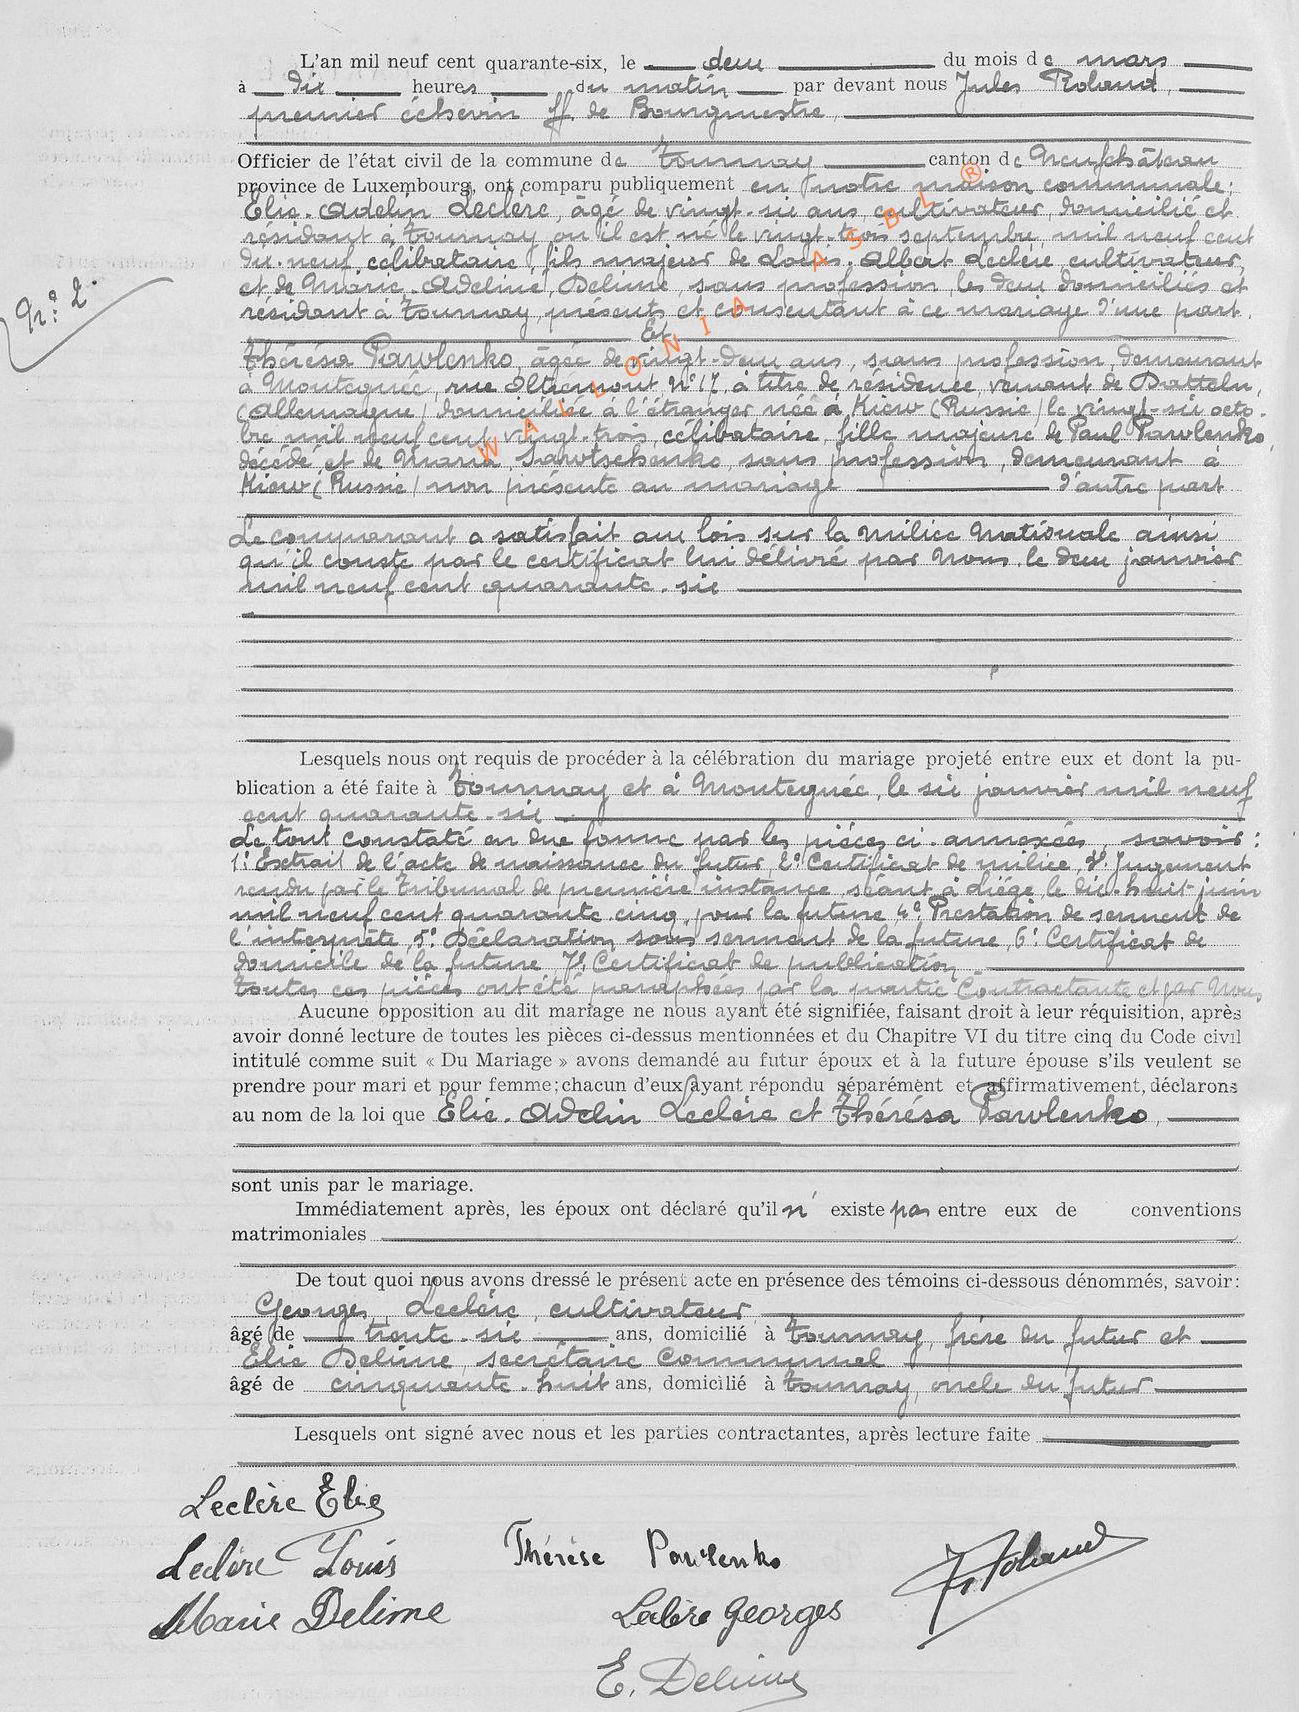 L'an mil neuf cent quarante-six, le deux du mois de mars
à dix heures du matin par devant nous Jules Roland,
premier échevin ff. de Bourgmestre,
Officier de l'état civil de la commune de Tournay canton de Neufchâteau
province de Luxembourg, ont comparu publiquement en notre maison communale:
Elie-Adelin Leclère, âgé de vingt-six ans, cultivateur, domicilié et
résidant à Tournay, où il est né le vingt-trois septembre, mil neuf cent
dix-neuf, célibataire, fils majeur de Louis-Albert Leclère cultivateur,
et de Marie-Adeline, Delime, sans profession, les deux domiciliés et
résidant à Tournay, présents et consentant à ce mariage d'une part.
Nr: 2.
Et
Thérésa Pawlenko, âgée de vingt-deux ans, sans profession, demeurant
à Montegnée, rue Altremont N° 17, à titre de résidence, venant de Datteln,
(Allemagne) domiciliée à l'étranger née à Kiew (Russie) le vingt-six octo-
bre mil neuf cent vingt-trois, célibataire, fille majeure de Paul Pawlenko,
décédé, et de Maria, Sawtschenko, sans profession, demeurant à
Kiew (Russie) non présente au mariage d'autre part
Le comparant a satisfait aux lois sur la Milice Nationale ainsi
qu'il conste par le certificat lui délivré par Nous, le deux janvier
mil neuf cent quarante-six
Lesquels nous ont requis de procéder à la célébration du mariage projeté entre eux et dont la pu-
blication a été faite à Tournay et à Montegnée, le six janvier mil neuf
cent quarante-six
Le tout constaté en due forme par les pièces ci-annexées savoir:
1° Extrait de l'acte de naissance du futur, 2° Certificat de milice, 3° Jugement
rendu par le Tribunal de première instance séant à Liége, le dix-huit juin
mil neuf cent quarante-cinq, pour la future 4° Prestation de serment de
l'interprète, 5° Déclaration sous serment de la future, 6° Certificat de
domicile de la future 7° Certificat de publication
Toutes ces pièces ont été paraphées par la partie Contractante et par Nous
Aucune opposition au dit mariage ne nous ayant été signifiée, faisant droit à leur réquisition, après
avoir donné lecture de toutes les pièces ci-dessus mentionnées et du Chapitre VI du titre cinq du Code civil
intitulé comme suit « Du Mariage » avons demandé au futur époux et à la future épouse s'ils veulent se
prendre pour mari et pour femme; chacun d'eux ayant répondu séparément et affirmativement, déclarons
au nom de la loi que Elie-Adelin Leclère et Thérésa Pawlenko,
sont unis par le mariage.
Immédiatement après, les époux ont déclaré qu'il n' existe pas entre eux de conventions
matrimoniales
De tout quoi nous avons dressé le présent acte en présence des témoins ci-dessous dénommés, savoir:
Georges, Leclère, cultivateur
âgé de trente-six ans, domicilié à Tournay, frère du futur et
Elie Delime, secrétaire Communal
âgé de cinquante-huit ans, domicilié à Tournay, oncle du futur
Lesquels ont signé avec nous et les parties contractantes, après lecture faite
Leclère Elie
Leclère Louis Thérèse Pawlenko J. Roland
Marie Delime Leclère Georges
E. Delime
WALLONIA ASBL ®